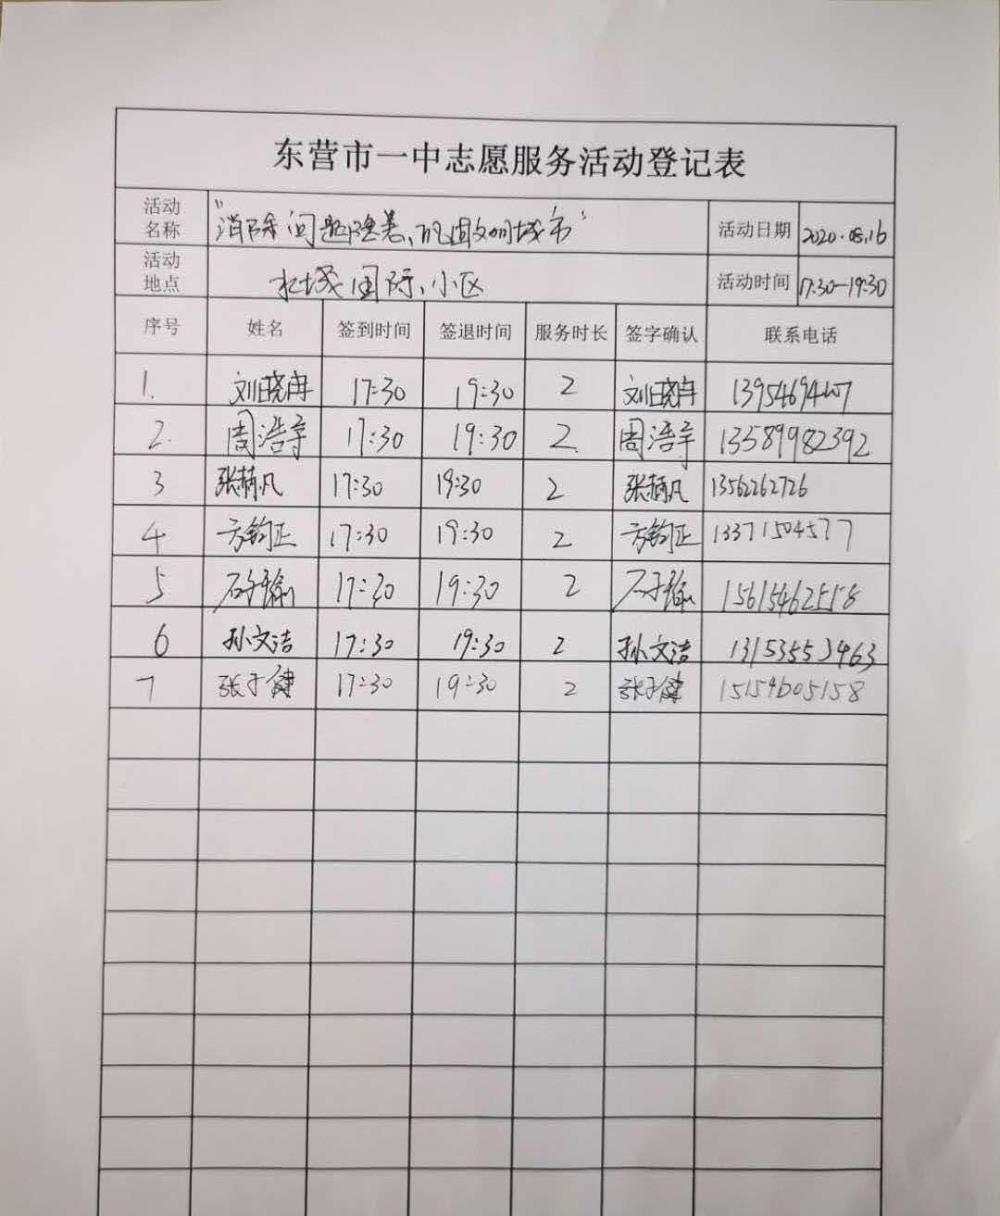 东营市一中志愿服务活动登记表
活动名称 "消除问题隐患、巩固文明城市" 活动日期 2020.08.16
活动地点 水城国际小区 活动时间 17:30—19:30
序号 姓名 签到时间 签退时间 服务时长 签字确认 联系电话
1. 刘晓冉 17:30 19:30 2 刘晓冉
2. 周浩宇 17:30 19:30 2. 周浩宇 13589982392
3 张楠凡 17:30 19:30 2 张楠凡 13562262726
4 方钧正 17:30 19:30 2 方钧正 13371504577
5 石子瑜 17:30 19:30 2 石子瑜 15615462558
6 孙文洁 17:30 19:30 2 孙文洁 13153553463
7 张子健 17:30 19:30 2 张子健 15154605158